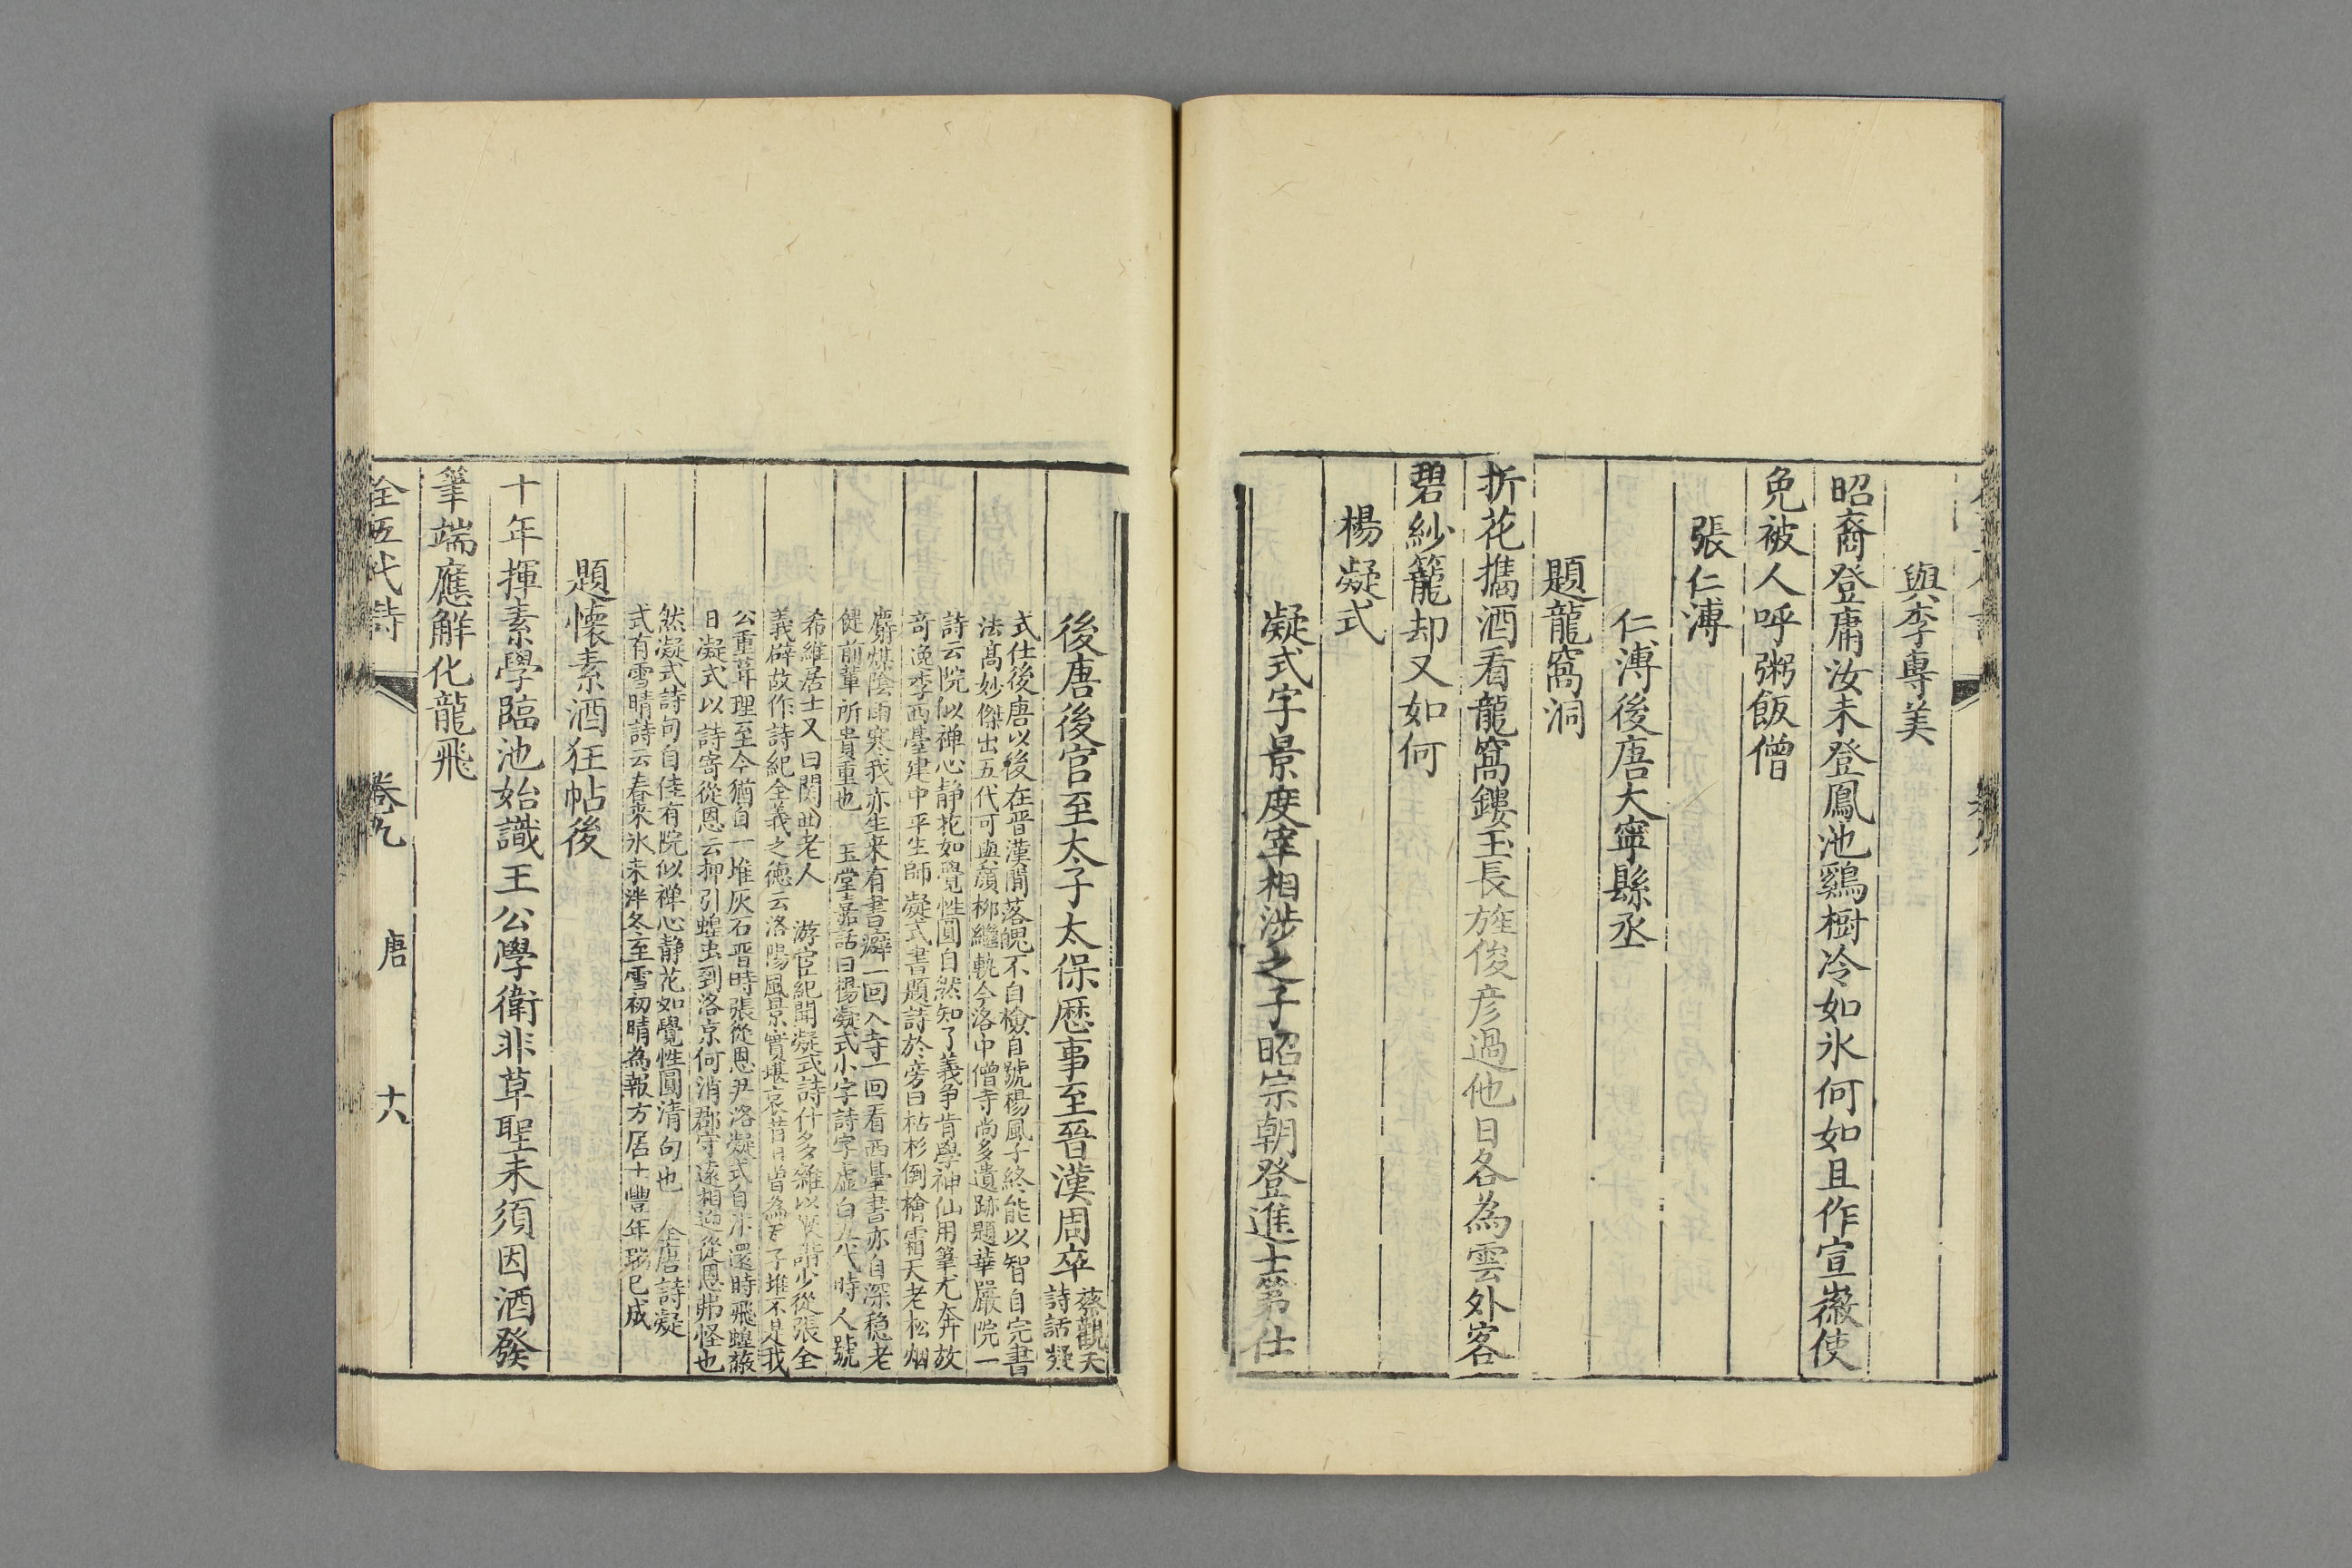 與李專美
昭裔登庸汝未登鳳池鷄樹冷如氷何如且作宣徽使
免被人呼粥飯僧
張仁溥
仁溥後唐大寧縣丞
題龍窩洞
折花擕酒看龍窩鏤玉長旌俊彦過他日各為雲外客
碧紗籠却又如何
楊凝式
凝式字景度宰相涉之子昭宗朝登進士第仕
後唐後官至太子太保歷事至晉漢周卒
蔡觀天
詩話凝
式仕後唐以後在晋漢間落魄不自檢自號楊風子終能以智自完書
法髙妙傑出五代可與顔柳繼軌今洛中僧寺尚多遺跡題華嚴院一
詩云院似禅心静花如覺性圓自然知了義争肯學神仙用筆尤奔放
竒逸李西臺建中平生師凝式書題詩於旁曰枯杉倒檜霜天老松烟
麝煤陰雨寒我亦生来有書癖一回入寺一回看西臺書亦自深穏老
健前輩所貴重也 玉堂嘉話曰楊凝式小字詩字虛白五代時人號
希維居士又曰関西老人 游宦紀聞凝式詩什多雜以詼諧少從張全
義辟故作詩紀全義之德云洛陽風景實堪哀昔日曾為瓦子堆不是我
公重葺理至今猶自一堆灰石晋時張從恩尹洛凝式自汴還時飛蝗蔽
日凝式以詩寄從恩云押引蝗虫到洛京何消郡守遠相迎從恩弗怪也
然凝式詩句自佳有院似禅心静花如覺性圓清句也 全唐詩凝
式有雪晴詩云春来氷未泮冬至雪初晴為報方居十豐年瑞已成
題懐素酒狂帖後
十年揮素學臨池始識王公學衛非草聖未須因酒發
筆端應解化龍飛
全五代詩 卷九 唐 十八